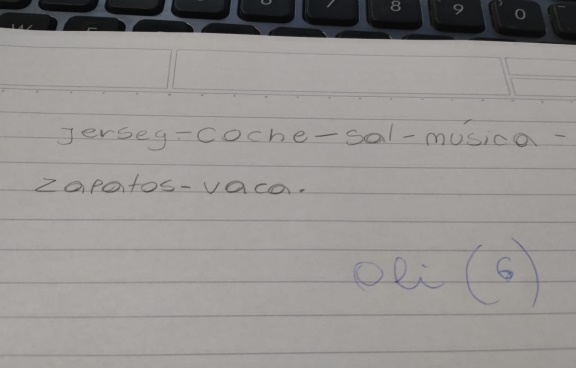 jersey-coche-sal-música-
zapatos-vaca.
Oli (6)